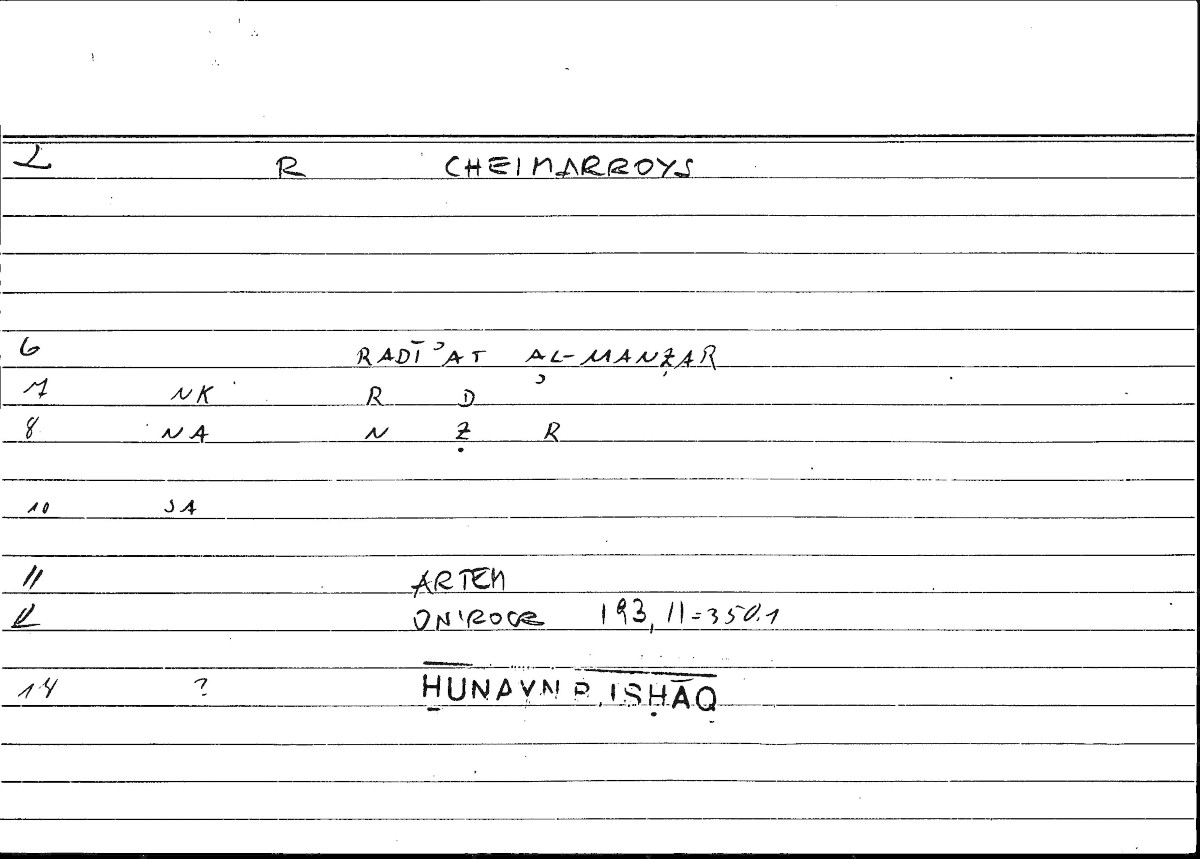 2 R CHEIMARROYS
6 RADĪʾAT AL-MANẒAR
7 NK R D ʾ
8 NA N Ẓ R
10 JA
11 ARTEM
12 ONIROCR 193,11=350.1
14 ? ḤUNAYN B. ISḤĀQ